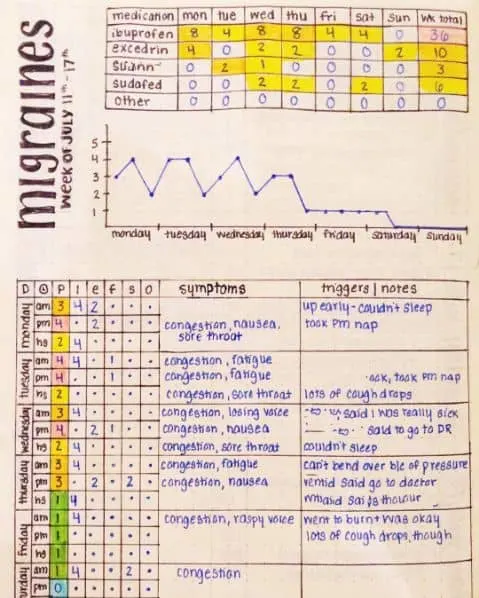 migraines
week of JULY 11th - 17th
medication mon tue wed thu fri sat sun wk total
ibuprofen 8 4 8 8 4 4 0 36
excedrin 4 0 2 2 0 0 2 10
0 2 1 0 0 0 0 3
sudafed 0 0 2 2 0 2 0 6
other 0 0 0 0 0 0 0 0
5
4
3
2
1
monday tuesday wednesday thursday friday saturday sunday
D P I e f s o symptoms triggers | notes
monday
am 3 4 2 • • • up early - couldn't sleep
pm 4 • 2 • • • congestion, nausea, took pm nap
sore throat
hs 2 4 • • • •
tuesday
am 4 4 • 1 • • congestion, fatigue
pm 4 • • 1 • • congestion, fatigue took pm nap
hs 2 • • • • • congestion, sore throat lots of cough drops
wednesday
am 3 4 • • • • congestion, losing voice said I was really sick
pm 4 • 2 1 • • congestion, nausea said to go to DR
hs 2 4 • • • • congestion, sore throat couldn't sleep
thursday
am 3 4 • • • • congestion, fatigue can't bend over b/c of pressure
pm 3 • 2 • 2 • congestion, nausea said go to doctor
hs 1 4 • • • •
friday
am 1 4 • • • • congestion, raspy voice went to was okay
pm 1 • • • • • lots of cough drops, though
hs 1 • • • • •
urday
am 1 4 • • 2 • congestion
pm 0 • • • • •